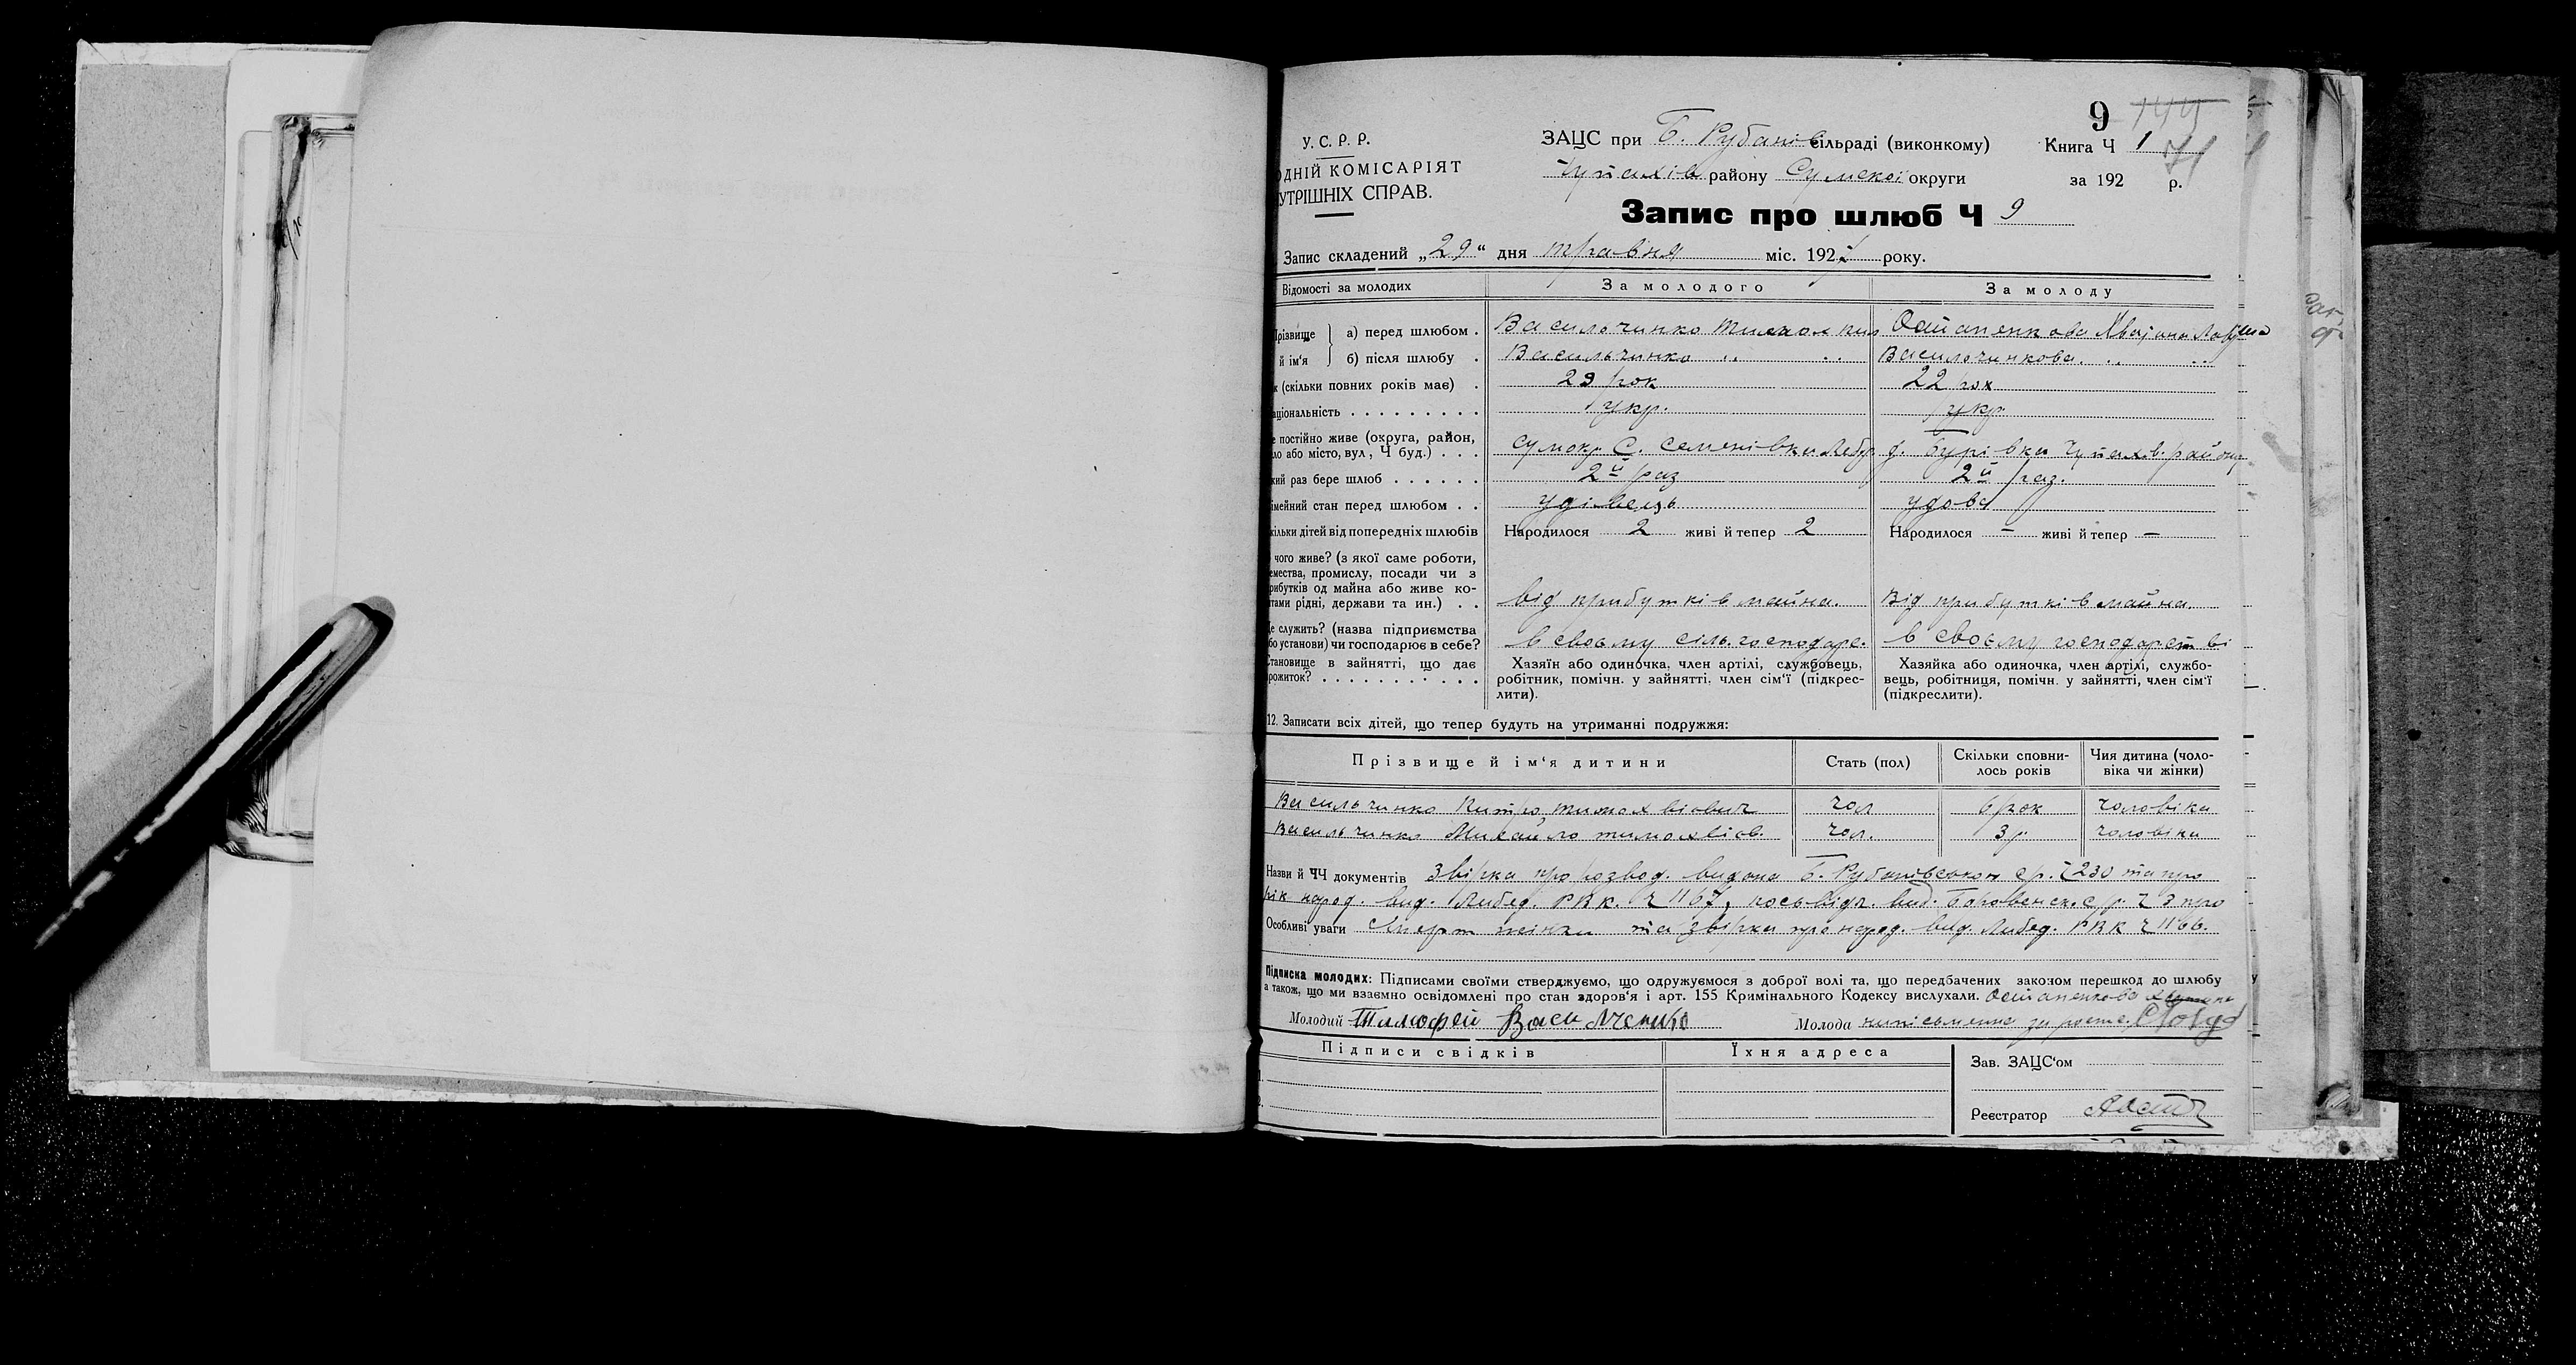 9
У.С.Р.Р.
ОДНІЙ КОМІСАРІЯТ
УТРІШНІХ СПРАВ.
ЗАЦС при Б. Рубанів сільраді (виконкому) Книга Ч 1
Чупахів району Сумської округи за 192 р.
Запис про шлюб Ч 9
Запис складений „29“ дня травня міс. 192 року.
Відомості за молодих За молодого За молоду
Прізвище й ім'я
а) перед шлюбом . Васильчинко Остапенкова
б) після шлюбу . Васильчинко „ „ Васильчинкова „ „
к (скільки повних років має) . 29 рок 22 рок
аціональність . . . . . . . . . укр. укр.
е постійно живе (округа, район,
ло або місто, вул, Ч буд.) . . . Сумокр С. Семенівка Лебед. д. Бурівка Чупахів. району
кий раз бере шлюб . . . . . . 2й раз 2й раз.
імейний стан перед шлюбом . . удівець удова
кільки дітей від попередніх шлюбів Народилося 2 живі й тепер 2 Народилося – живі й тепер –
чого живе? (з якої саме роботи,
емества, промислу, посади чи з
рибутків од майна або живе ко-
тами рідні, держави та ин.) . . від прибутків майна. Від прибутків майна.
е служить? (назва підприємства
бо установи) чи господарює в себе? в своєму сіль. господарс. в своєму господарстві
Становище в зайнятті, що дає
рожиток? . . . . . . . . . . .
Хазяїн або одиночка, член артілі, службовець,
робітник, помічн. у зайнятті, член сім'ї (підкрес-
лити).
Хазяйка або одиночка, член артілі, службо-
вець, робітниця, помічн. у зайнятті, член сім'ї
(підкреслити).
12. Записати всіх дітей, що тепер будуть на утриманні подружжя:
Прізвище й ім'я дитини Стать (пол) Скільки сповни-
лось років Чия дитина (чоло-
віка чи жінки)
Васильчинко Тимохвіович чол 6 рок чоловіка
Васильчинко Михайло Тимохвіов. чол. 3 р чоловіка
Назви й ЧЧ документів Звірка про розвод. видана Б. Рубанівською ср. Ч 230 та про
рік народ. вид. Лебед. РВК. Ч 1167, посьвідч. вид. с/р. Ч 3 про
Особливі уваги Смерт жінки та звірка про народ. вид. Лебед. РВК Ч 1166.
Підписка молодих: Підписами своїми стверджуємо, що одружуємося з доброї волі та, що передбачених законом перешкод до шлюбу
а також, що ми взаємно освідомлені про стан здоров'я і арт. 155 Кримінального Кодексу вислухали. Остапенкова
Молодий Тимофей Васильченко Молода
Підписи свідків Їхня адреса
Зав. ЗАЦС'ом
Реєстратор